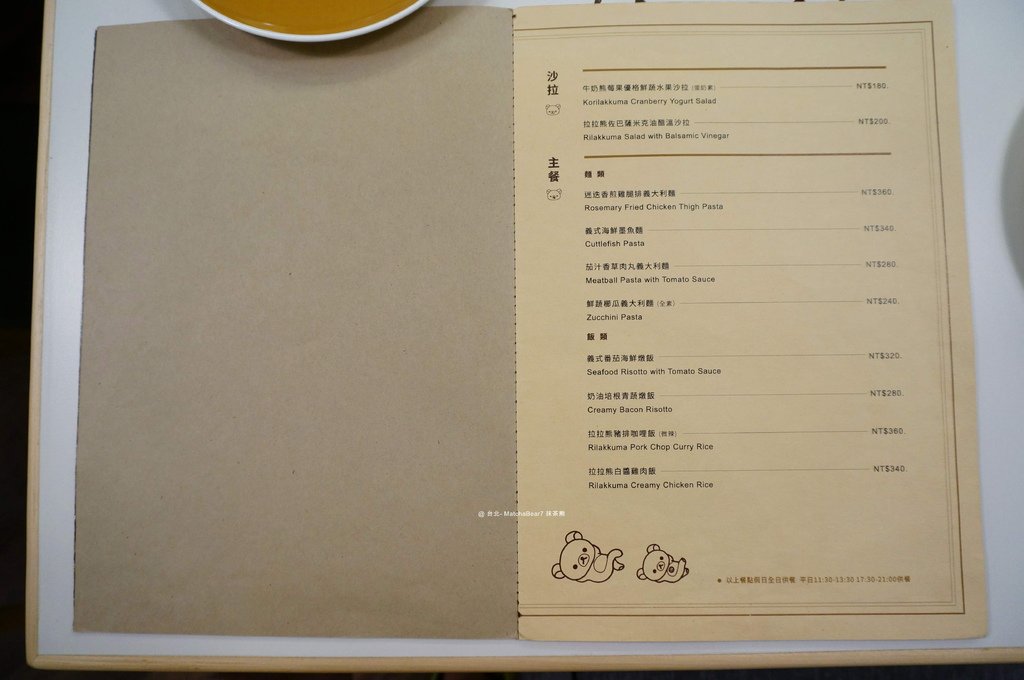 沙拉
牛奶熊莓果優格鮮蔬水果沙拉 (蛋奶素) NT$180.
Korilakkuma Cranberry Yogurt Salad
拉拉熊佐巴薩米克油醋溫沙拉 NT$200.
Rilakkuma Salad with Balsamic Vinegar
主餐
麵 類
迷迭香煎雞腿排義大利麵 NT$360.
Rosemary Fried Chicken Thigh Pasta
義式海鮮墨魚麵 NT$340.
Cuttlefish Pasta
茄汁香草肉丸義大利麵 NT$280.
Meatball Pasta with Tomato Sauce
鮮蔬櫛瓜義大利麵 (全素) NT$240.
Zucchini Pasta
飯 類
義式番茄海鮮燉飯 NT$320.
Seafood Risotto with Tomato Sauce
奶油培根青蔬燉飯 NT$280.
Creamy Bacon Risotto
拉拉熊豬排咖哩飯 (微辣) NT$360.
Rilakkuma Pork Chop Curry Rice
拉拉熊白醬雞肉飯 NT$340.
Rilakkuma Creamy Chicken Rice
@ 台北- MatchaBear7 抹茶熊
● 以上餐點假日全日供餐 平日11:30-13:30 17:30-21:00供餐